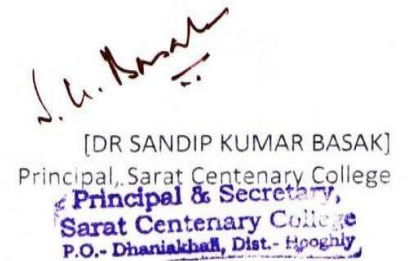 S. K. Basak
[DR SANDIP KUMAR BASAK]
Principal, Sarat Centenary College
Principal & Secretary,
Sarat Centenary College
P.O.- Dhaniakhali, Dist.- Hooghly